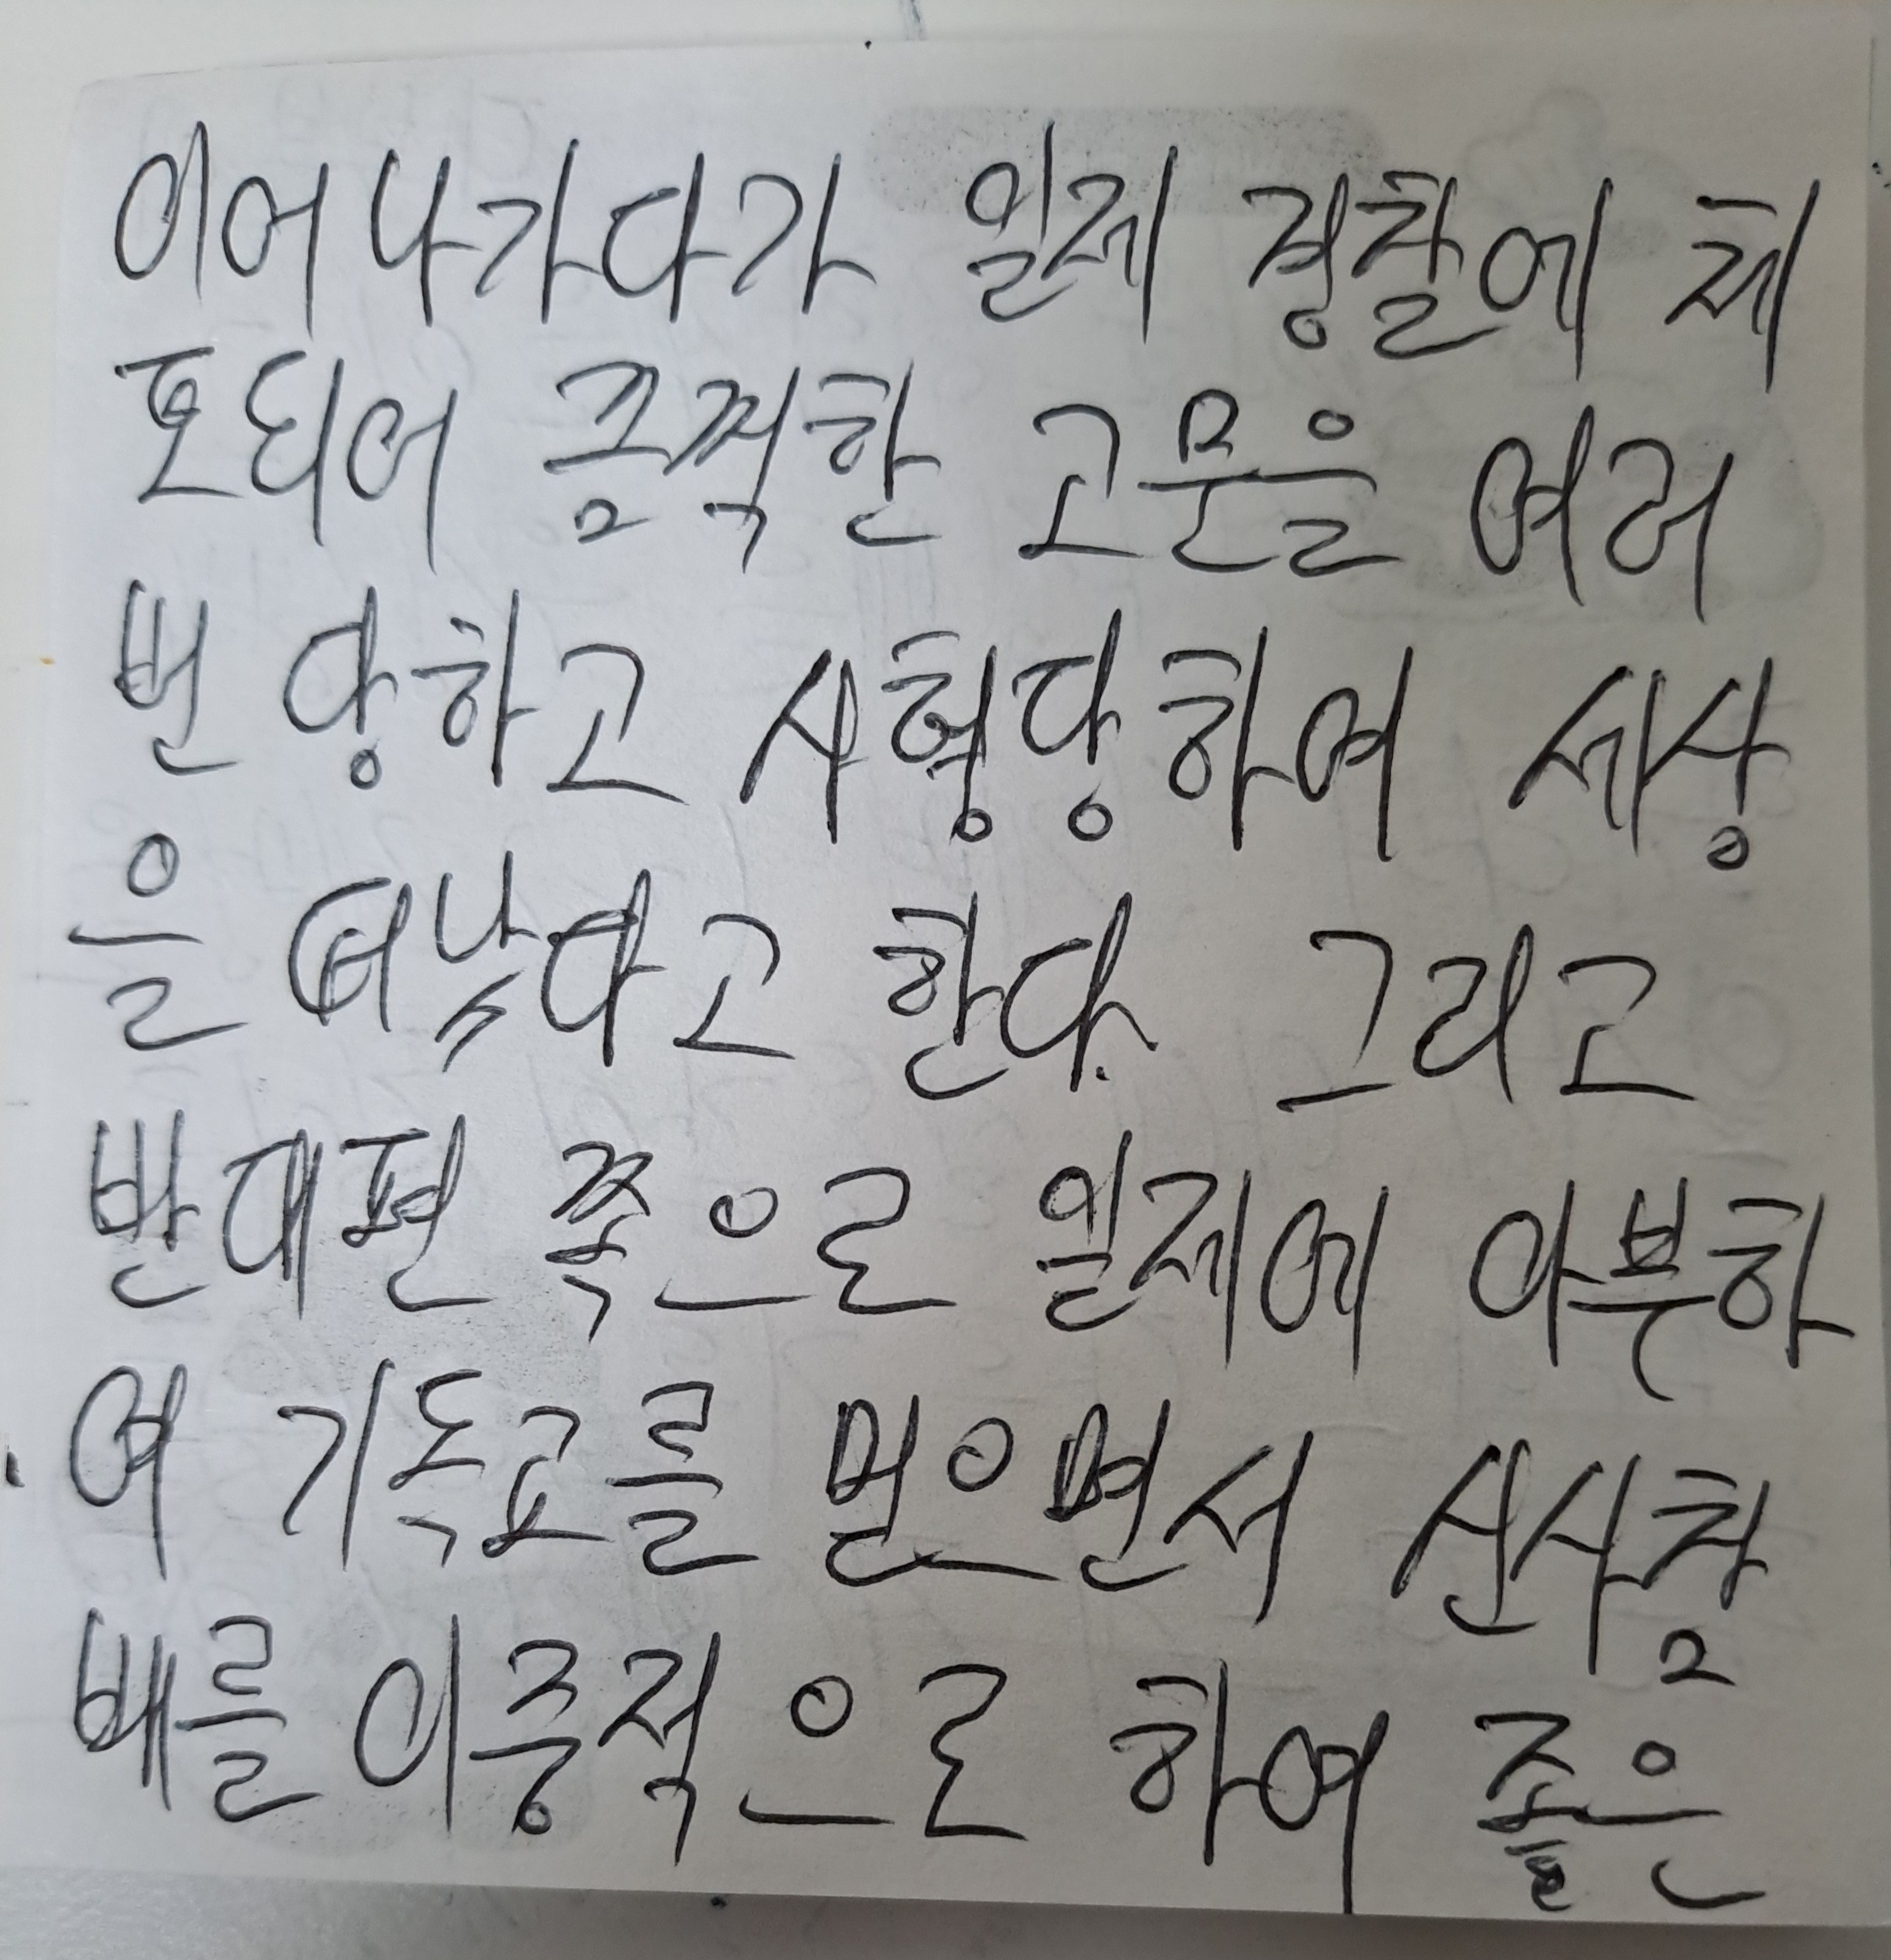 이어나가다가 일제 경찰에 체
포되어 끔찍한 고문을 여러
번 당하고 사형당하여 세상
을 떠났다고 한다. 그리고
반대편 쪽으로 일제에 아부하
여 기독교를 믿으면서 신사참
배를 이중적으로 하여 좋은